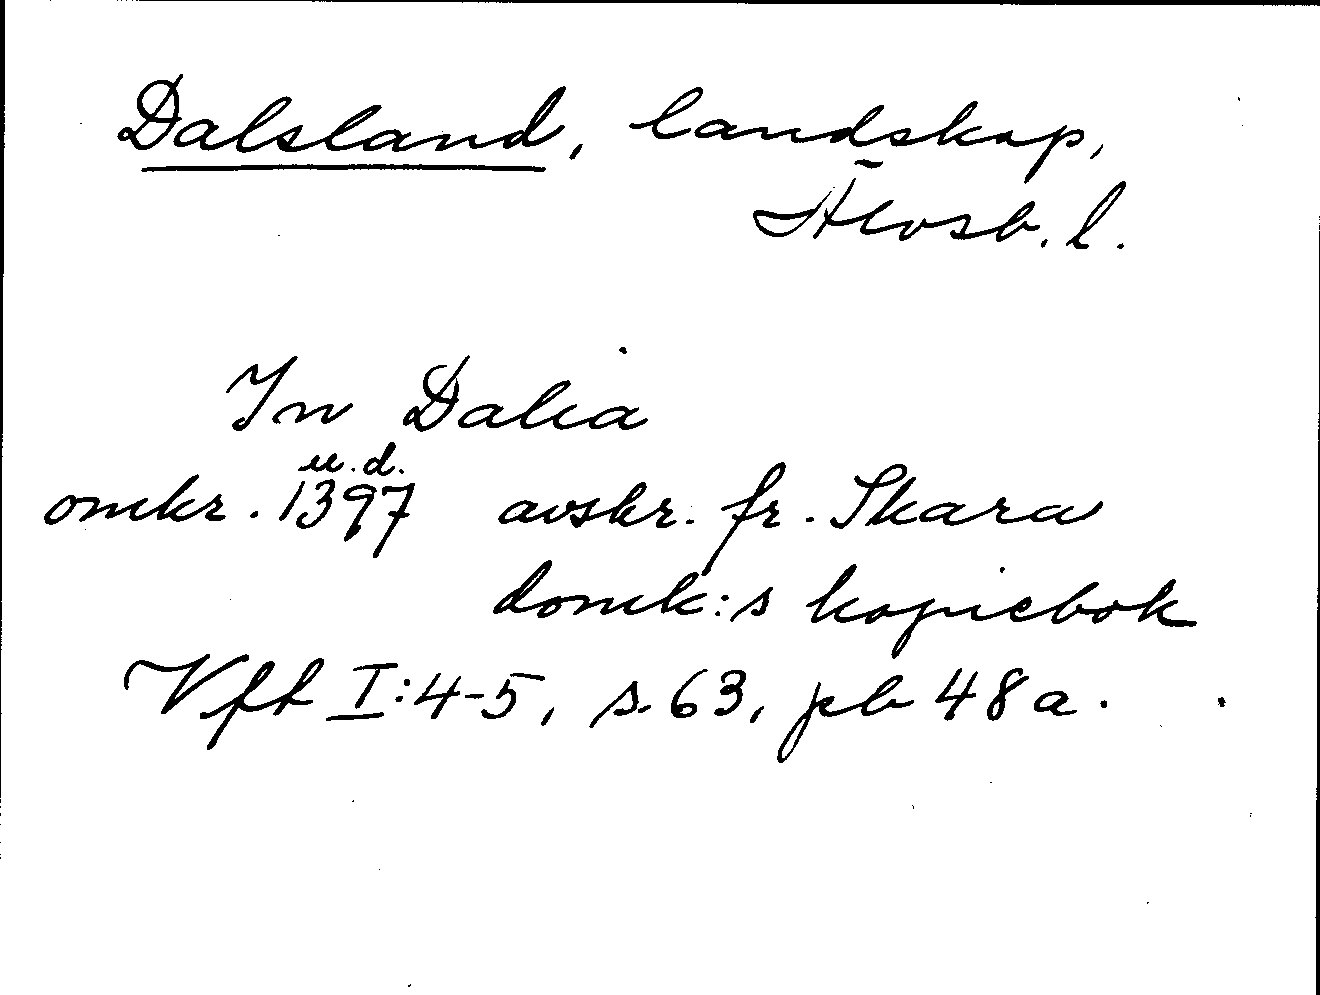 Dalsland, landskap,
Älvsb. l.
In Dalia
u.d.
omkr. 1397 avskr. fr. Skara
domk:s kopiebok
Vft I:4-5, s. 63, pb 48a.